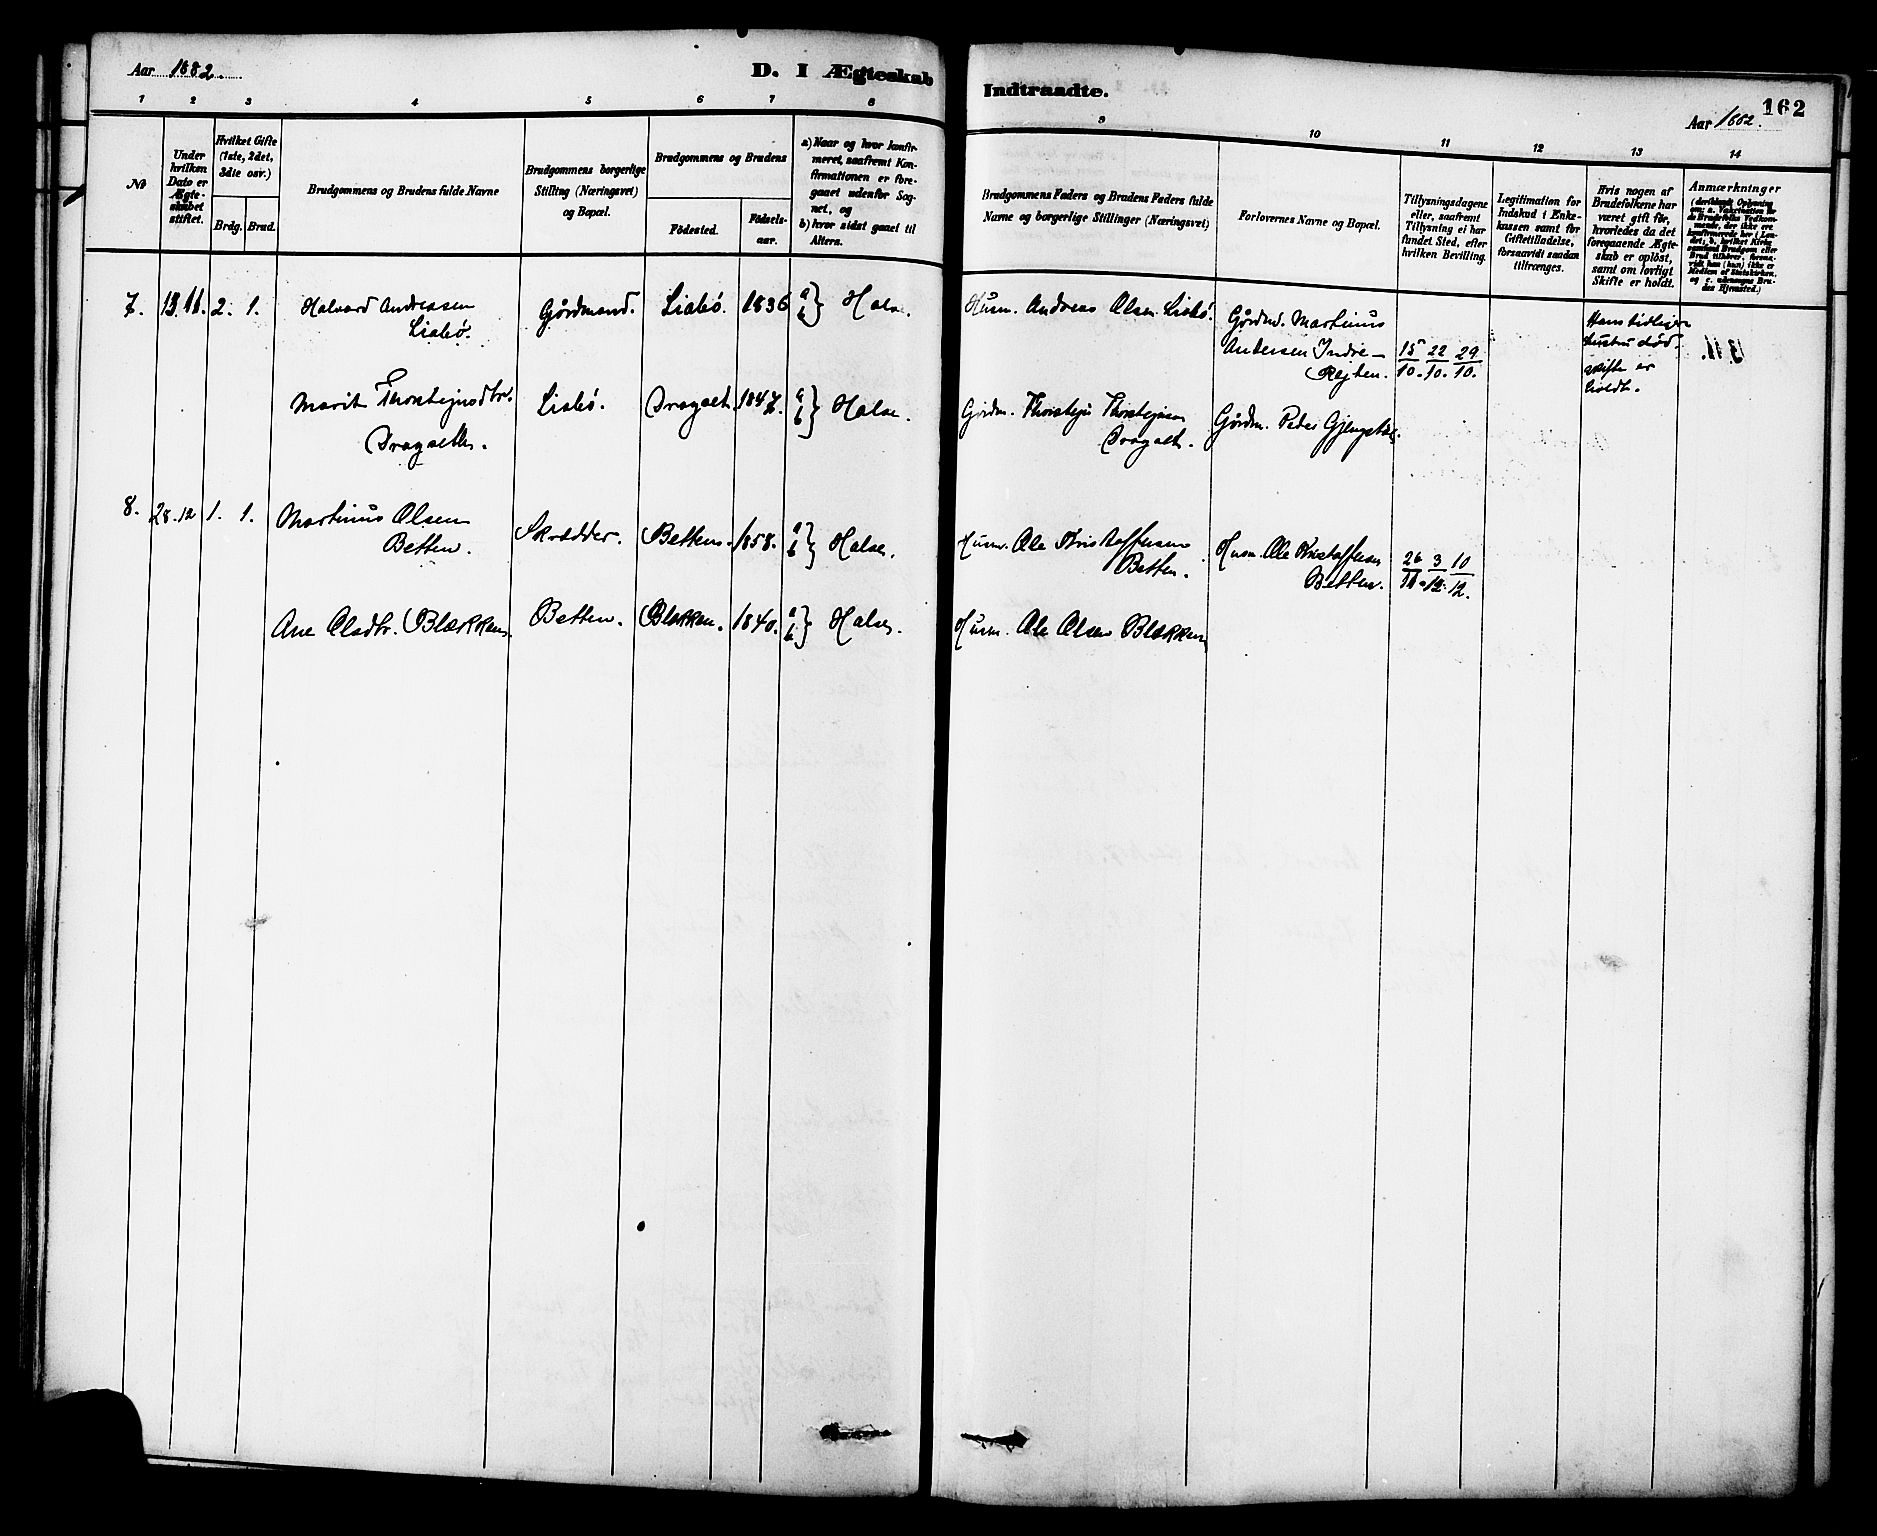 Aar 1882.
D. I Ægteskab
1 2 3 4 5 6 7 8
No
Under hvilken Dato er Ægteskabet stiftet.
Hvilket Gifte (1ste, 2det, 3die osv.)
Brdg. Brud.
Brudgommens og Brudens fulde Navne
Brudgommens borgerlige Stilling (Næringsvei) og Bopæl.
Brudgommens og Brudens
Födested.
Födselsaar.
a) Naar og hvor konfirmeret, saafremt Konfirmationen er foregaaet udenfor Sognet, og
b) hvor sidst gaaet til Alters.
7. 13.11. 2. 1. Halvard Andreassen Gårdmand. Liabø. 1836 a b } Halse.
Liabø.
Marit Thorstejnsdtr. Liabø. Dragset. 1847. a b } Halse.
Dragseth.
8. 28.12 1. 1. Martinus Olsen Skrædder. Betten. 1858. a b } Halse.
Betten.
Ane Olsdtr. Blækken. Betten. Blækken. 1840. a b } Halse.
Indtraadte.
162
Aar 1882.
9 10 11 12 13 14
Brudgommens Faders og Brudens Faders fulde Navne og borgerlige Stillinger (Næringsvei)
Forlovernes Navne og Bopæl.
Tillysningsdagene eller, saafremt Tillysning ei har fundet Sted, efter hvilken Bevilling.
Legitimation for Indskud i Enkekassen samt for Giftetilladelse, forsaavidt saadan tiltrænges.
Hvis nogen af Brudefolkene har været gift för, hvorledes da det foregaaende Ægteskab er oplöst, samt om lovligt Skifte er holdt.
Anmærkninger
Husm. Andreas Olsen Liabø. Gårdmd. Martinus
Andersen Indre-
Rejten.
15/10. 22/10. 29/10.
Hans tidligere
hustru død.
skifte er
holdt.
13.11.
Gårdm. Thorstejn Thorstejnsen
Dragset.
Gårdm. Peder Gjengstø.
Husm. Ole Kristoffersen
Betten.
Husm. Ole Kristoffersen
Betten.
26/11. 3/12. 10/12.
Husm. Ole Olsen Blækken